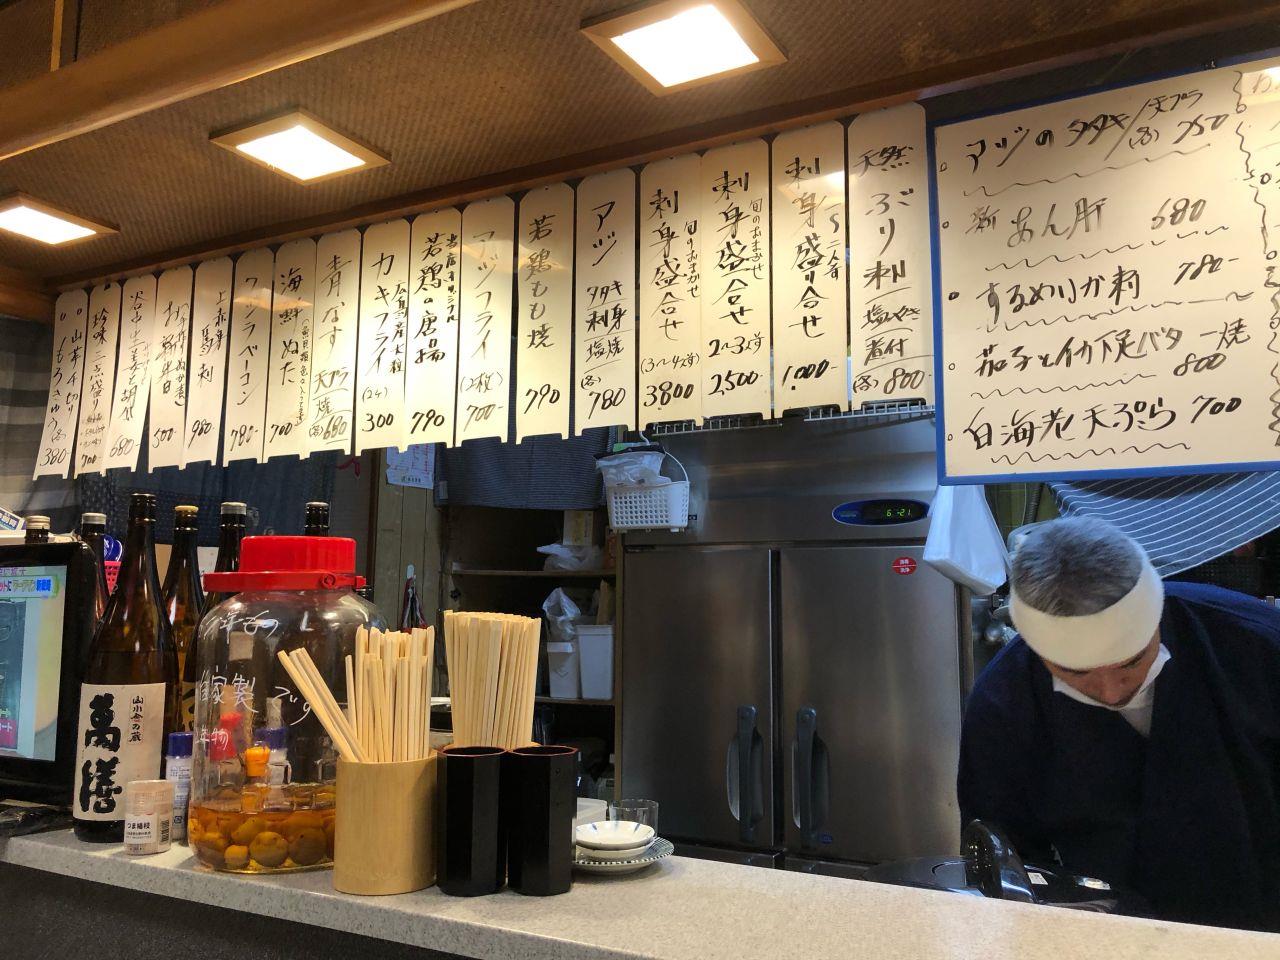 アジのタタキ/天プラ
(各) 750
新 あん肝 680
するめいか刺 780-
茄子とイカ下足バター焼
800
白海老天ぷら 700
天然 ぶり刺 塩やき 煮付 (各) 800-
刺身盛り合せ 1,000-
刺身盛合せ 旬のおまかせ 2〜3人前 2,500-
刺身盛合せ 旬のおまかせ (3〜4人前) 3800
アジ タタキ 刺身 塩焼 (各) 780
若鶏もも焼 790
アジフライ (2枚) 700-
若鶏の唐揚 790
カキフライ 広島産大粒 (2ケ) 300
青なす 天プラ 焼 (各) 680
海鮮ぬた 700
クジラベーコン 780-
上赤身 馬刺 980
500-
谷中生姜と胡瓜 680
珍味 三点盛り 700-
山芋千切り
もろきゅう (各) 380-
6.-21.
自家製 です
萬膳
つま楊枝